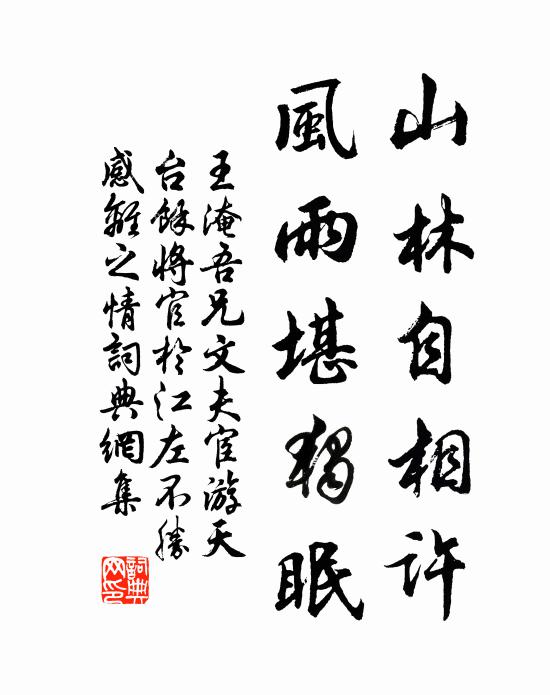 山林自相許
風雨堪獨眠
王淹吾兄文夫宦游天
台餘將官於江左不勝
感離之情詞典網集
詞典
网印